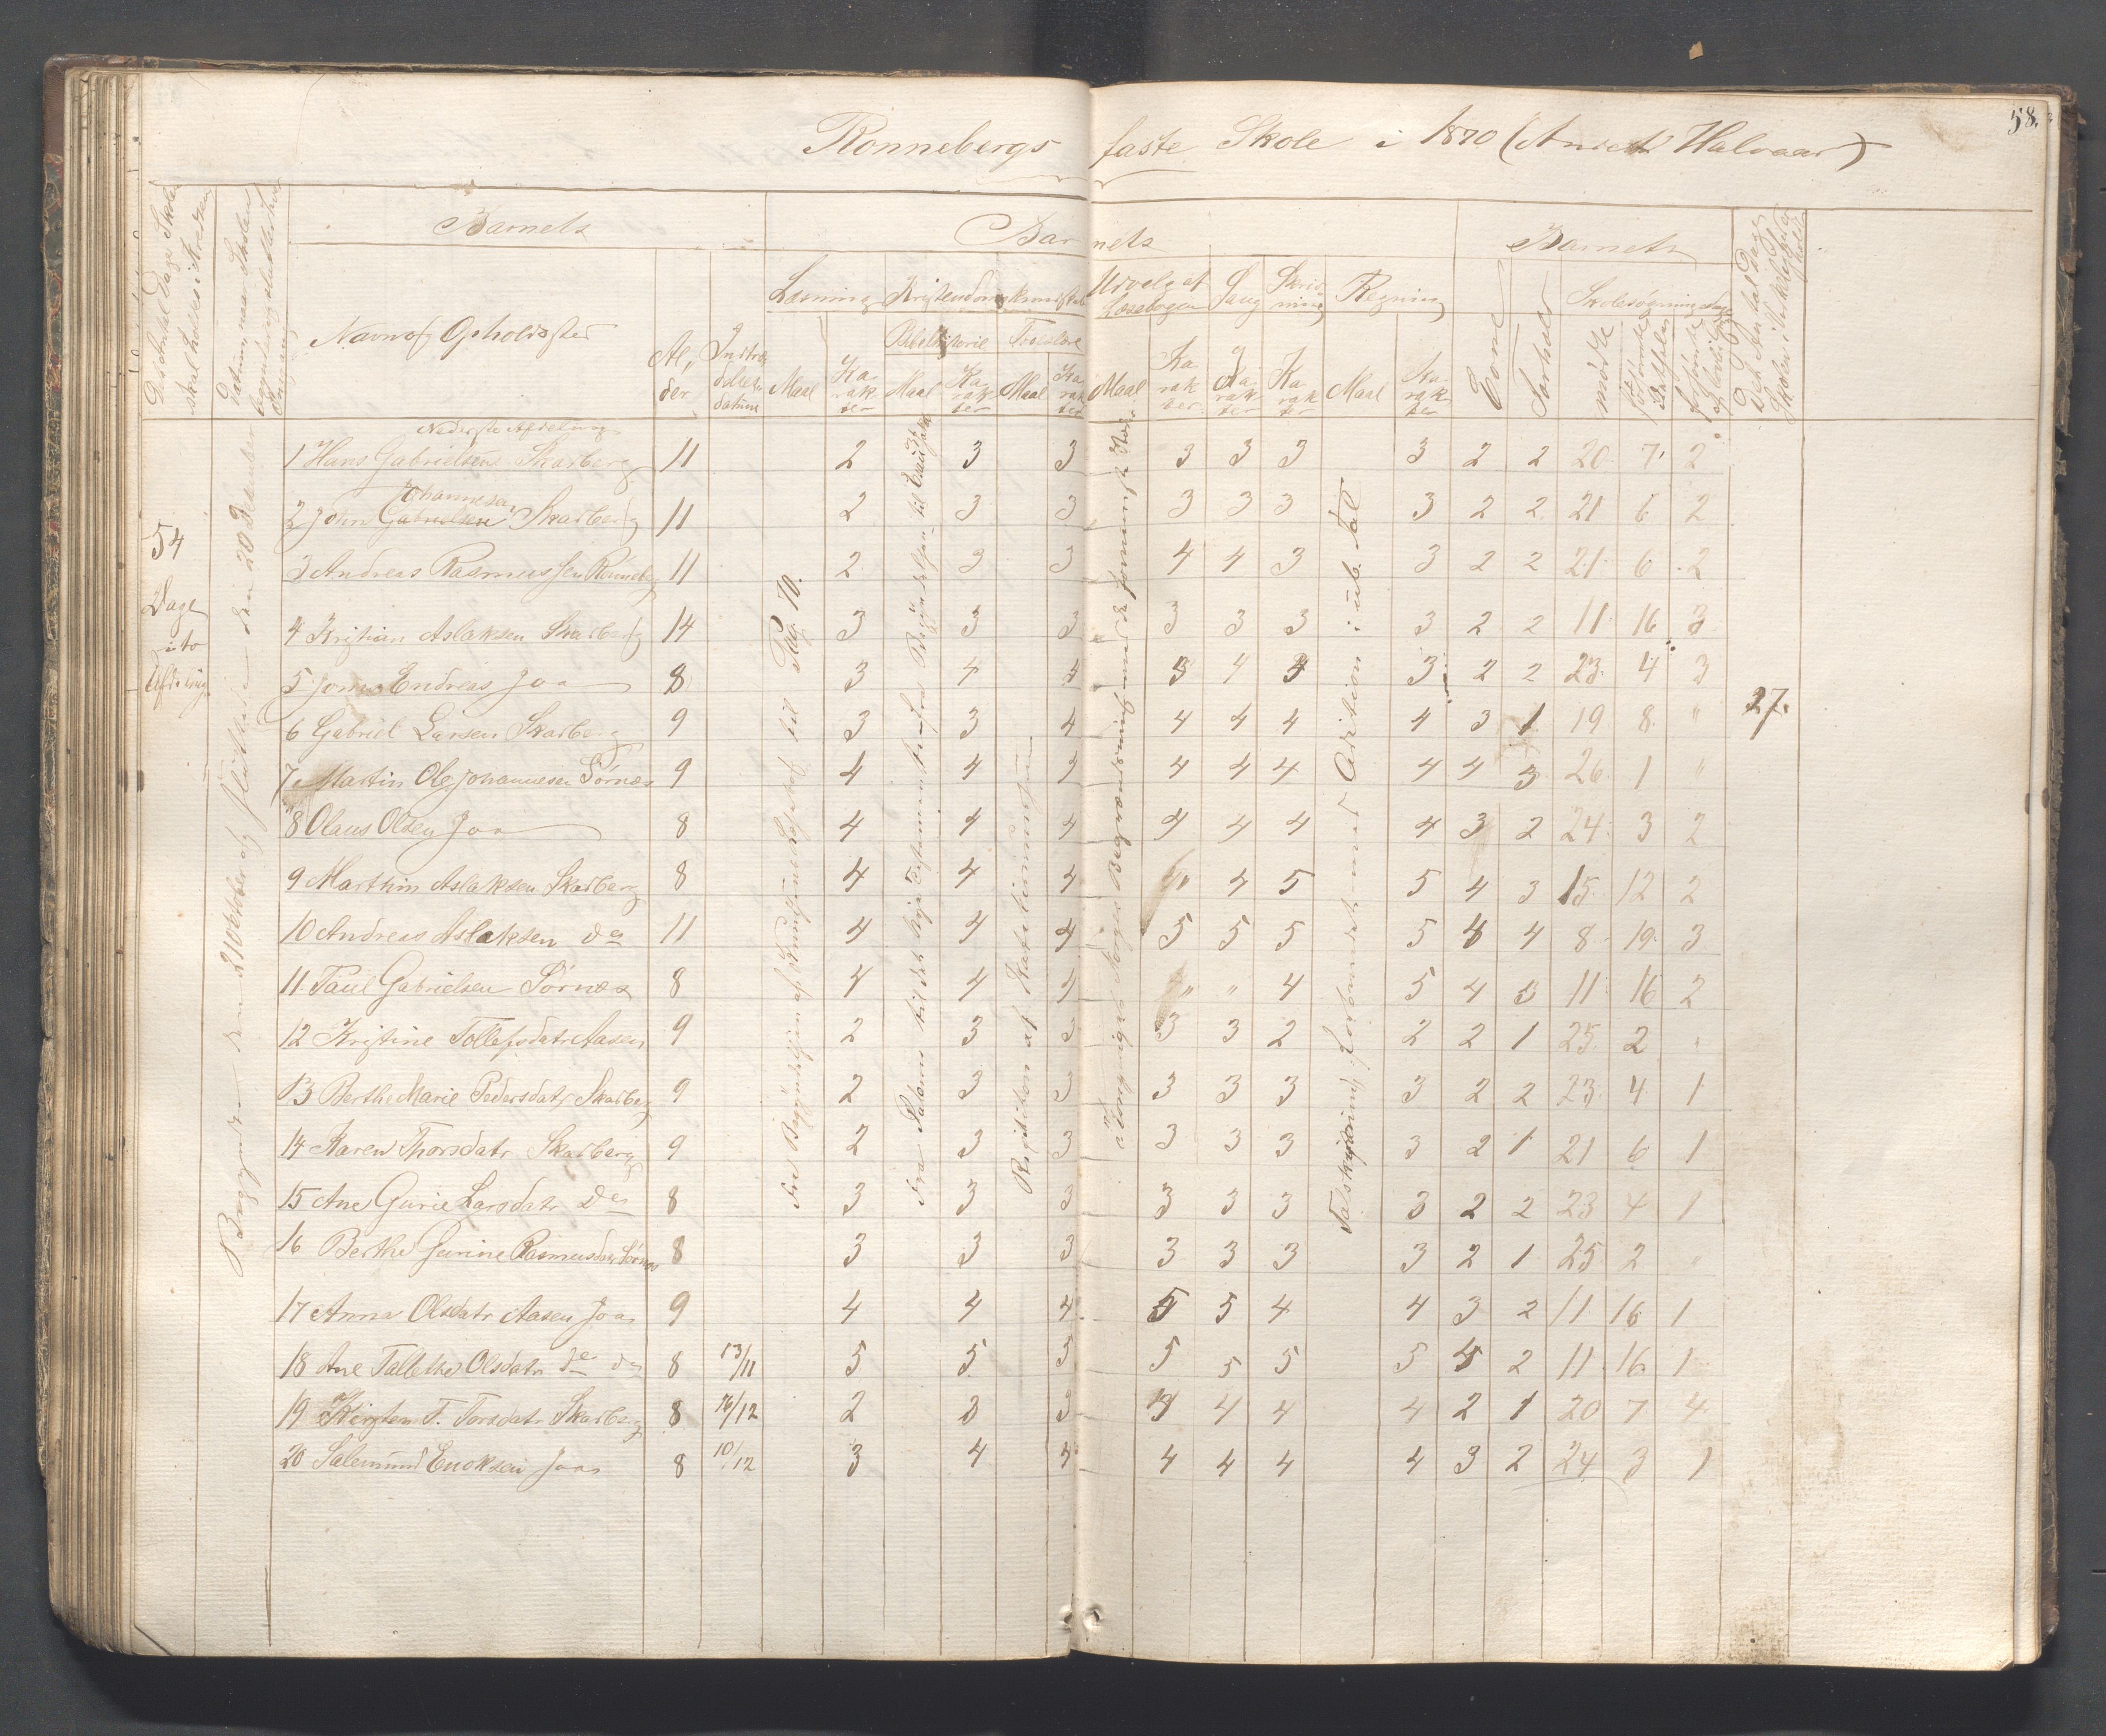 58.
Ronnebergs faste Skole i 1870 (Andet Halvaar)
Det Antal Dage Skolen skal holdes i Kredsen
Datum, naar Skolen begynder og slutter hver Omgang
Barnets
Barnets
Barnets
Det Antal Dage Skolen i Virkelighed er holdt
Navn og Opholdssted
Alder
Indtrædelsesdatum
Læsning
Kristendomskundskab
Udvalg af Læsebogen
Sang
Skrivning
Regning
Evne
Forhold
Skolesøgningsdage
Bibelhistorie
Troeslære
mødte
forsømte
Maal
Karakter
Maal
Karakter
Maal
Karakter
Maal
Karakter
Karakter
Karakter
Maal
Karakter
Nederste Afdeling
54 Dage i to Afdelinger
Begyndte den 21 Oktober og sluttede den 20 December
til Pag. 70.
Repetition af Katekismus
Addition i ub. Tal
1 Hans Gabrielsen Skarberg 11 2 3 3 3 3 3 3 2 2 20 7 2
Johannesen
2 John Gabrielsen Skarberg 11 2 3 3 3 3 3 3 2 2 21 6 2
3 Andreas Rasmussen Ronneberg 11 2 3 3 4 4 3 3 2 2 21 6 2
4 Kristian Aslaksen Skarberg 14 3 3 3 3 3 3 3 2 2 11 16 3
5 Jonas Endreas Joa 8 3 4 4 3 4 4 3 2 2 23 4 3
6 Gabriel Larsen Skarberg 9 3 3 4 4 4 4 4 3 1 19 8 "
27.
7 Martin Ole Johannesen Sørnes 9 4 4 4 4 4 4 4 4 3 26 1 "
8 Olaus Olsen Joa 8 4 4 4 4 4 4 4 3 2 24 3 2
9 Marthin Aslaksen Skarberg 8 4 4 4 " 4 5 5 4 3 15 12 2
10 Andreas Aslaksen do 11 4 4 4 5 5 5 5 4 4 8 19 3
11 Paul Gabrielsen Sørnes 8 4 4 4 " " 4 5 4 3 11 16 2
12 Kristine Tollefsdatr Aasen 9 2 3 3 3 3 2 2 2 1 25 2 "
13 Berthe Marie Pedersdatr Skarberg 9 2 3 3 3 3 3 3 2 2 23 4 1
14 Karen Thorsdatr Skarberg 9 2 3 3 3 3 3 3 2 1 21 6 1
15 Ane Gurie Larsdatr Do 8 3 3 3 3 3 3 3 2 2 23 4 1
16 Berthe Gurine Rasmusdatr Sørnes 8 3 3 3 3 3 3 3 2 1 25 2 "
17 Anna Olsdatr Aasen Joa 9 4 4 4 5 5 4 4 3 2 11 16 1
18 Ane Tallethe Olsdatr do do 8 13/11 5 5 5 5 5 5 5 4 2 11 16 1
19 Kirsten T. Torsdatr Skarberg 8 16/12 2 3 3 4 4 4 4 2 1 20 7 4
20 Salemund Enoksen Joa 8 10/12 3 4 4 4 4 4 4 3 2 24 3 1